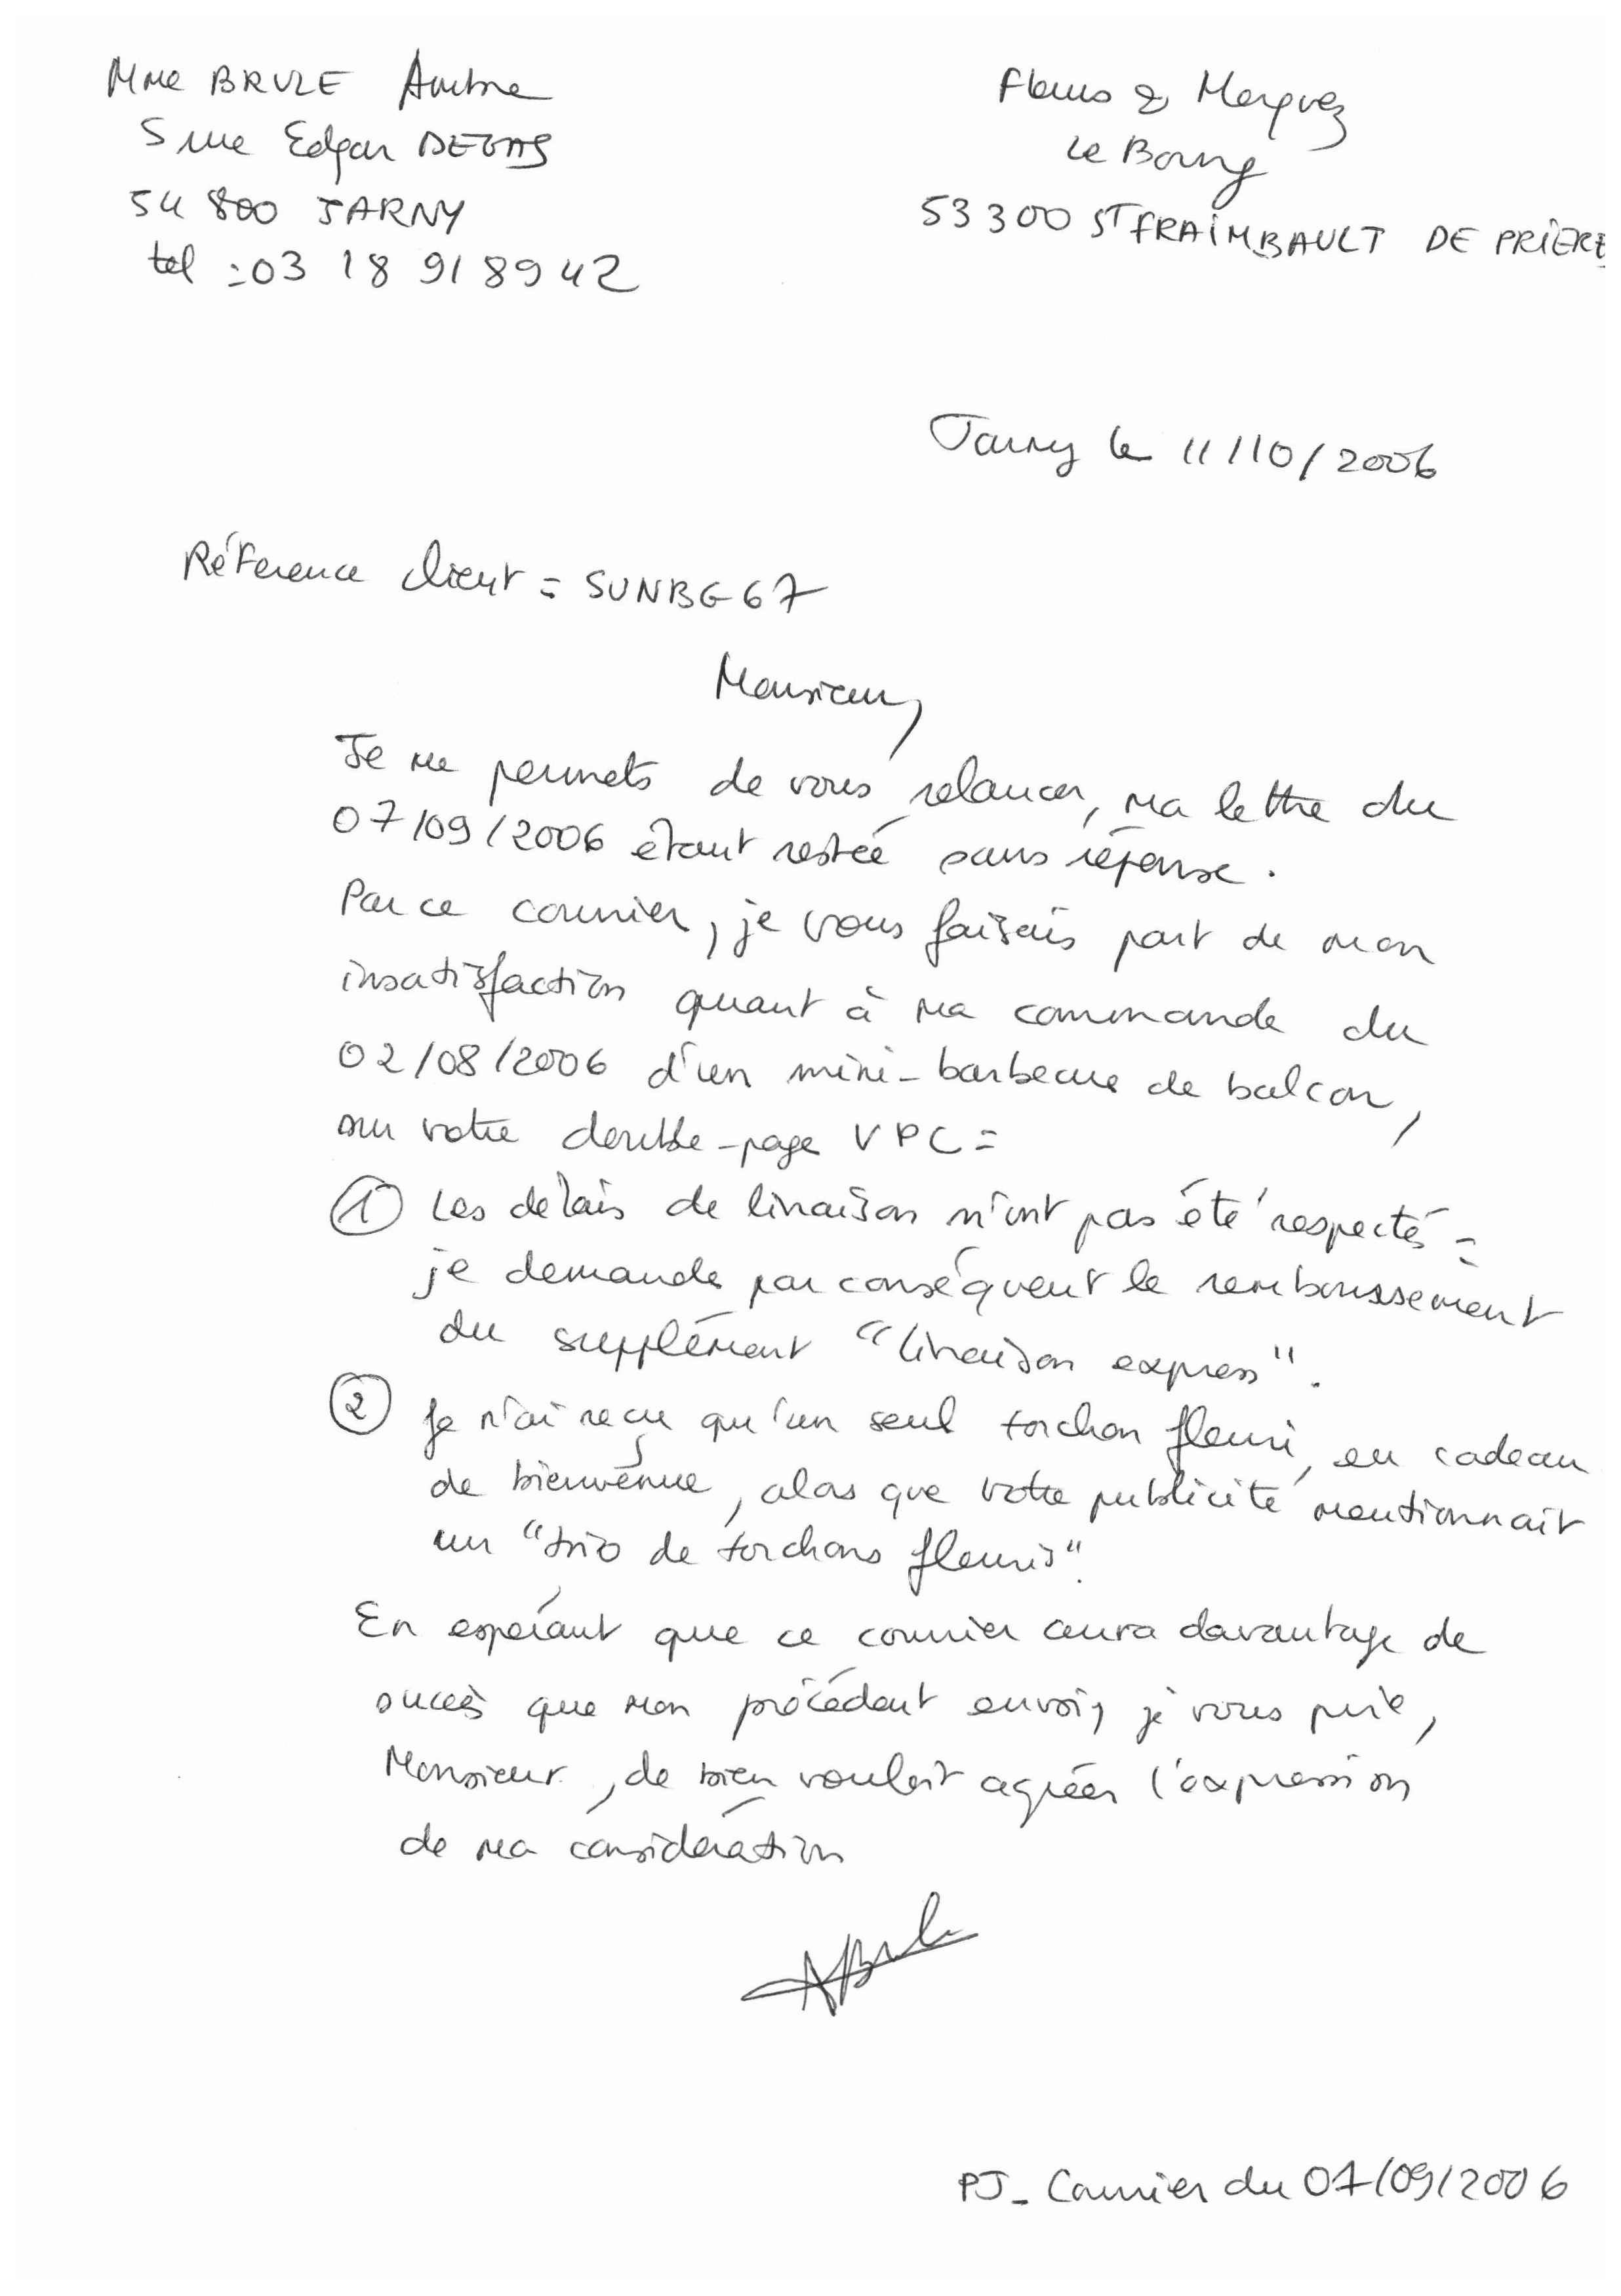 Mme BRULE Ambre
5 rue Edgar DEGAS
54 800 JARNY
tel : 03 18 91 89 42
Fleurs & Merguez
Le Bourg
53 300 ST FRAIMBAULT DE PRIERE
Jarny le 11/10/2006
Référence client = SUNBG67
Monsieur,
Je me permets de vous relancer, ma lettre du
07/09/2006 étant restée sans réponse.
Par ce courrier, je vous faisais part de mon
insatisfaction quant à ma commande du
02/08/2006 d'un mini-barbecue de balcon,
sur votre double-page VPC =
① Les délais de livraison n'ont pas été respectés =
je demande par conséquent le remboursement
du supplément "livraison express".
② Je n'ai reçu qu'un seul torchon fleuri, en cadeau
de bienvenue, alors que votre publicité mentionnait
un "trio de torchons fleuris".
En espérant que ce courrier aura davantage de
succès que mon précédent envoi, je vous prie,
Monsieur, de bien vouloir agréer l'expression
de ma considération
ABrule
PJ - Courrier du 07/09/2006